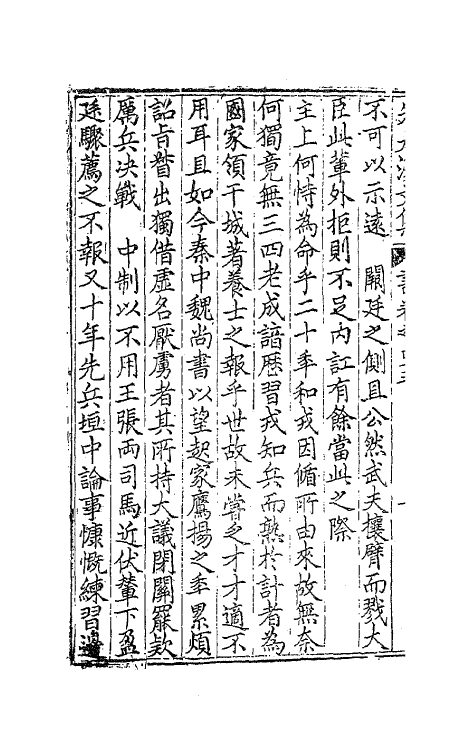 不可以示遠　闕廷之側且公然武夫攘臂而戮大
臣此輩外拒則不足内訌有餘當此之際
主上何恃為命乎二十年和戎因循所由來故無奈
何獨竟無三四老成諳歷習戎知兵而熟於計者為
國家領干城著養士之報乎世故未嘗乏才才適不
用耳且如今秦中魏尚書以望起家鷹揚之年累煩
詔旨督出獨借虛名厭虜者其所持大議閉關罷款
厲兵决戰　中制以不用王張両司馬近伏輦下盈
廷驟薦之不報又十年先兵垣中論事慷慨練習邊